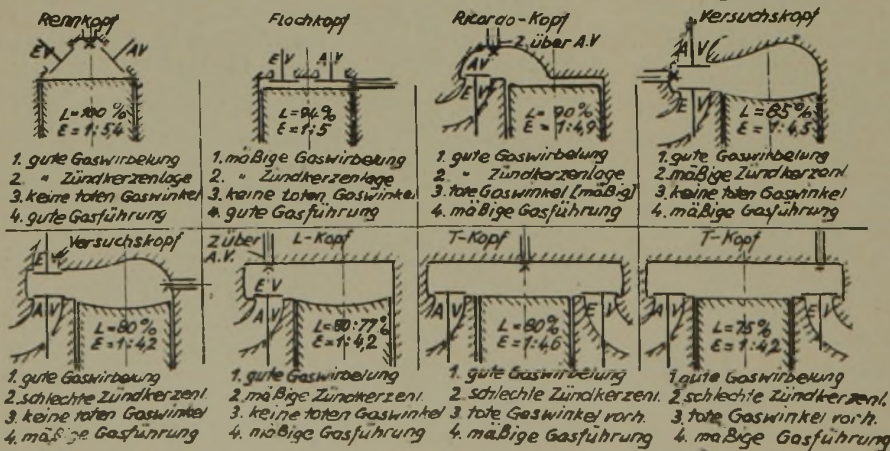 Rennkopf
E V
A V
L=100%
E=1:5,4
1. gute Gaswirbelung
2 " Zündkerzenlage
3. keine toten Gaswinkel
4. gute Gasführung
Flachkopf
E V
A V
L=94%
E=1:5
1. mäßige Gaswirbelung
2. " Zündkerzenlage
3. keine toten Gaswinkel
4. gute Gasführung
Ricardo-Kopf
Z über A.V
AV
E V
L=90%
E=1:4,9
1. gute Gaswirbelung
2 " Zündkerzenlage
3. tote Gaswinkel [mäßig]
4. mäßige Gasführung
Versuchskopf
A V
E V
L=85%
E=1:4,5
1. gute Gaswirbelung
2. mäßige Zündkerzenl.
3. keine toten Gaswinkel
4. mäßige Gasführung
Versuchskopf
E V
A V
L=80%
E=1:4,2
1. gute Gaswirbelung
2. schlechte Zündkerzenl.
3. keine toten Gaswinkel
4. mäßige Gasführung
Z über A.V.
L-Kopf
E V
A V
L=80:77%
E=1:4,2
1. gute Gaswirbelung
2. mäßige Zündkerzenl.
3. keine toten Gaswinkel
4. mäßige Gasführung
T-Kopf
A V
E V
L=80%
E=1:4,6
1. gute Gaswirbelung
2. schlechte Zündkerzenl.
3. tote Gaswinkel vorh.
4. mäßige Gasführung
T-Kopf
A V
E V
L=75%
E=1:4,2
1. gute Gaswirbelung
2. schlechte Zündkerzenl.
3. tote Gaswinkel vorh.
4. mäßige Gasführung